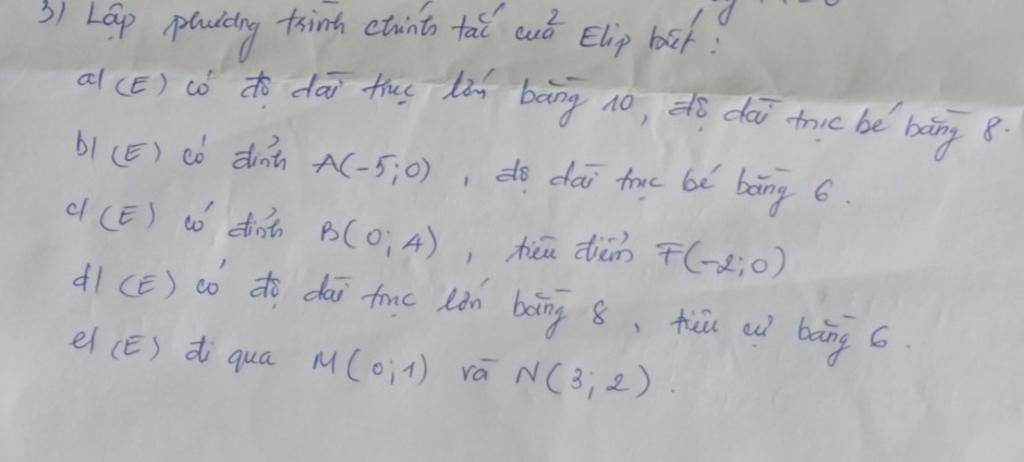 3) Lập phương trình chính tắc của Elip biết:
a) (E) có độ dài trục lớn bằng 10, độ dài trục bé bằng 8.
b) (E) có đỉnh A(-5;0), độ dài trục bé bằng 6.
c) (E) có đỉnh B(0;4), tiêu điểm F(-2;0)
d) (E) có độ dài trục lớn bằng 8, tiêu cự bằng 6.
e) (E) đi qua M(0;1) và N(3;2).